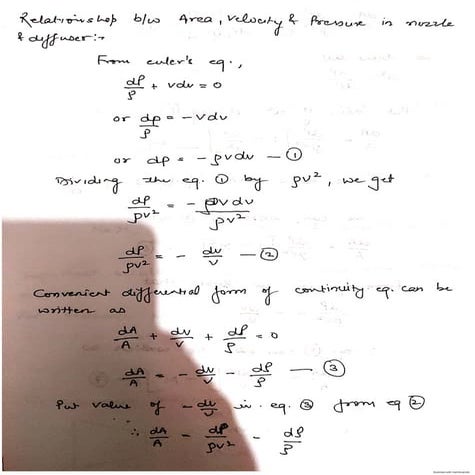 Relationship b/w Area, Velocity & Pressure in nozzle
& diffuser:-
From euler's eq.,
dp/ρ + vdv = 0
or dp/ρ = -vdv
or dp = -ρvdv — ①
Dividing the eq. ① by ρv², we get
dp/ρv² = -ρvdv/ρv²
dp/ρv² = - dv/v — ②
Convenient differential form of continuity eq. can be
written as
dA/A + dv/v + dρ/ρ = 0
dA/A = - dv/v - dρ/ρ — ③
Put value of - dv/v in eq. ③ from eq ②
∴ dA/A = dp/ρv² - dρ/ρ